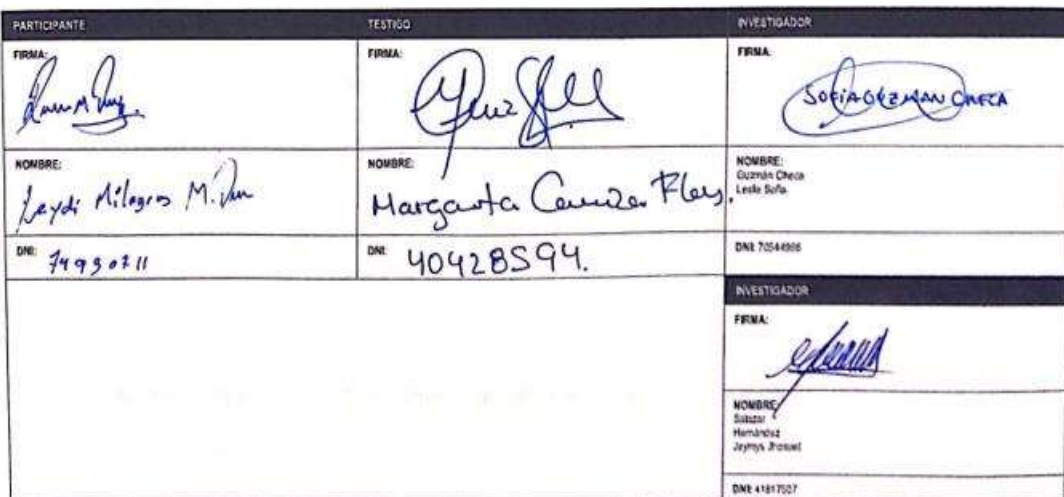 PARTICIPANTE
TESTIGO
INVESTIGADOR
FIRMA:
FIRMA:
FIRMA:
SOFIA GUZMAN CHECA
NOMBRE:
Leydi Milagros M.
NOMBRE:
Margarita Flores.
NOMBRE:
Guzmán Checa
Leslie Sofía
DNI:
DNI: 40428594.
DNI:
INVESTIGADOR
FIRMA:
NOMBRE:
Salazar
Hernández
DNI: 41817507